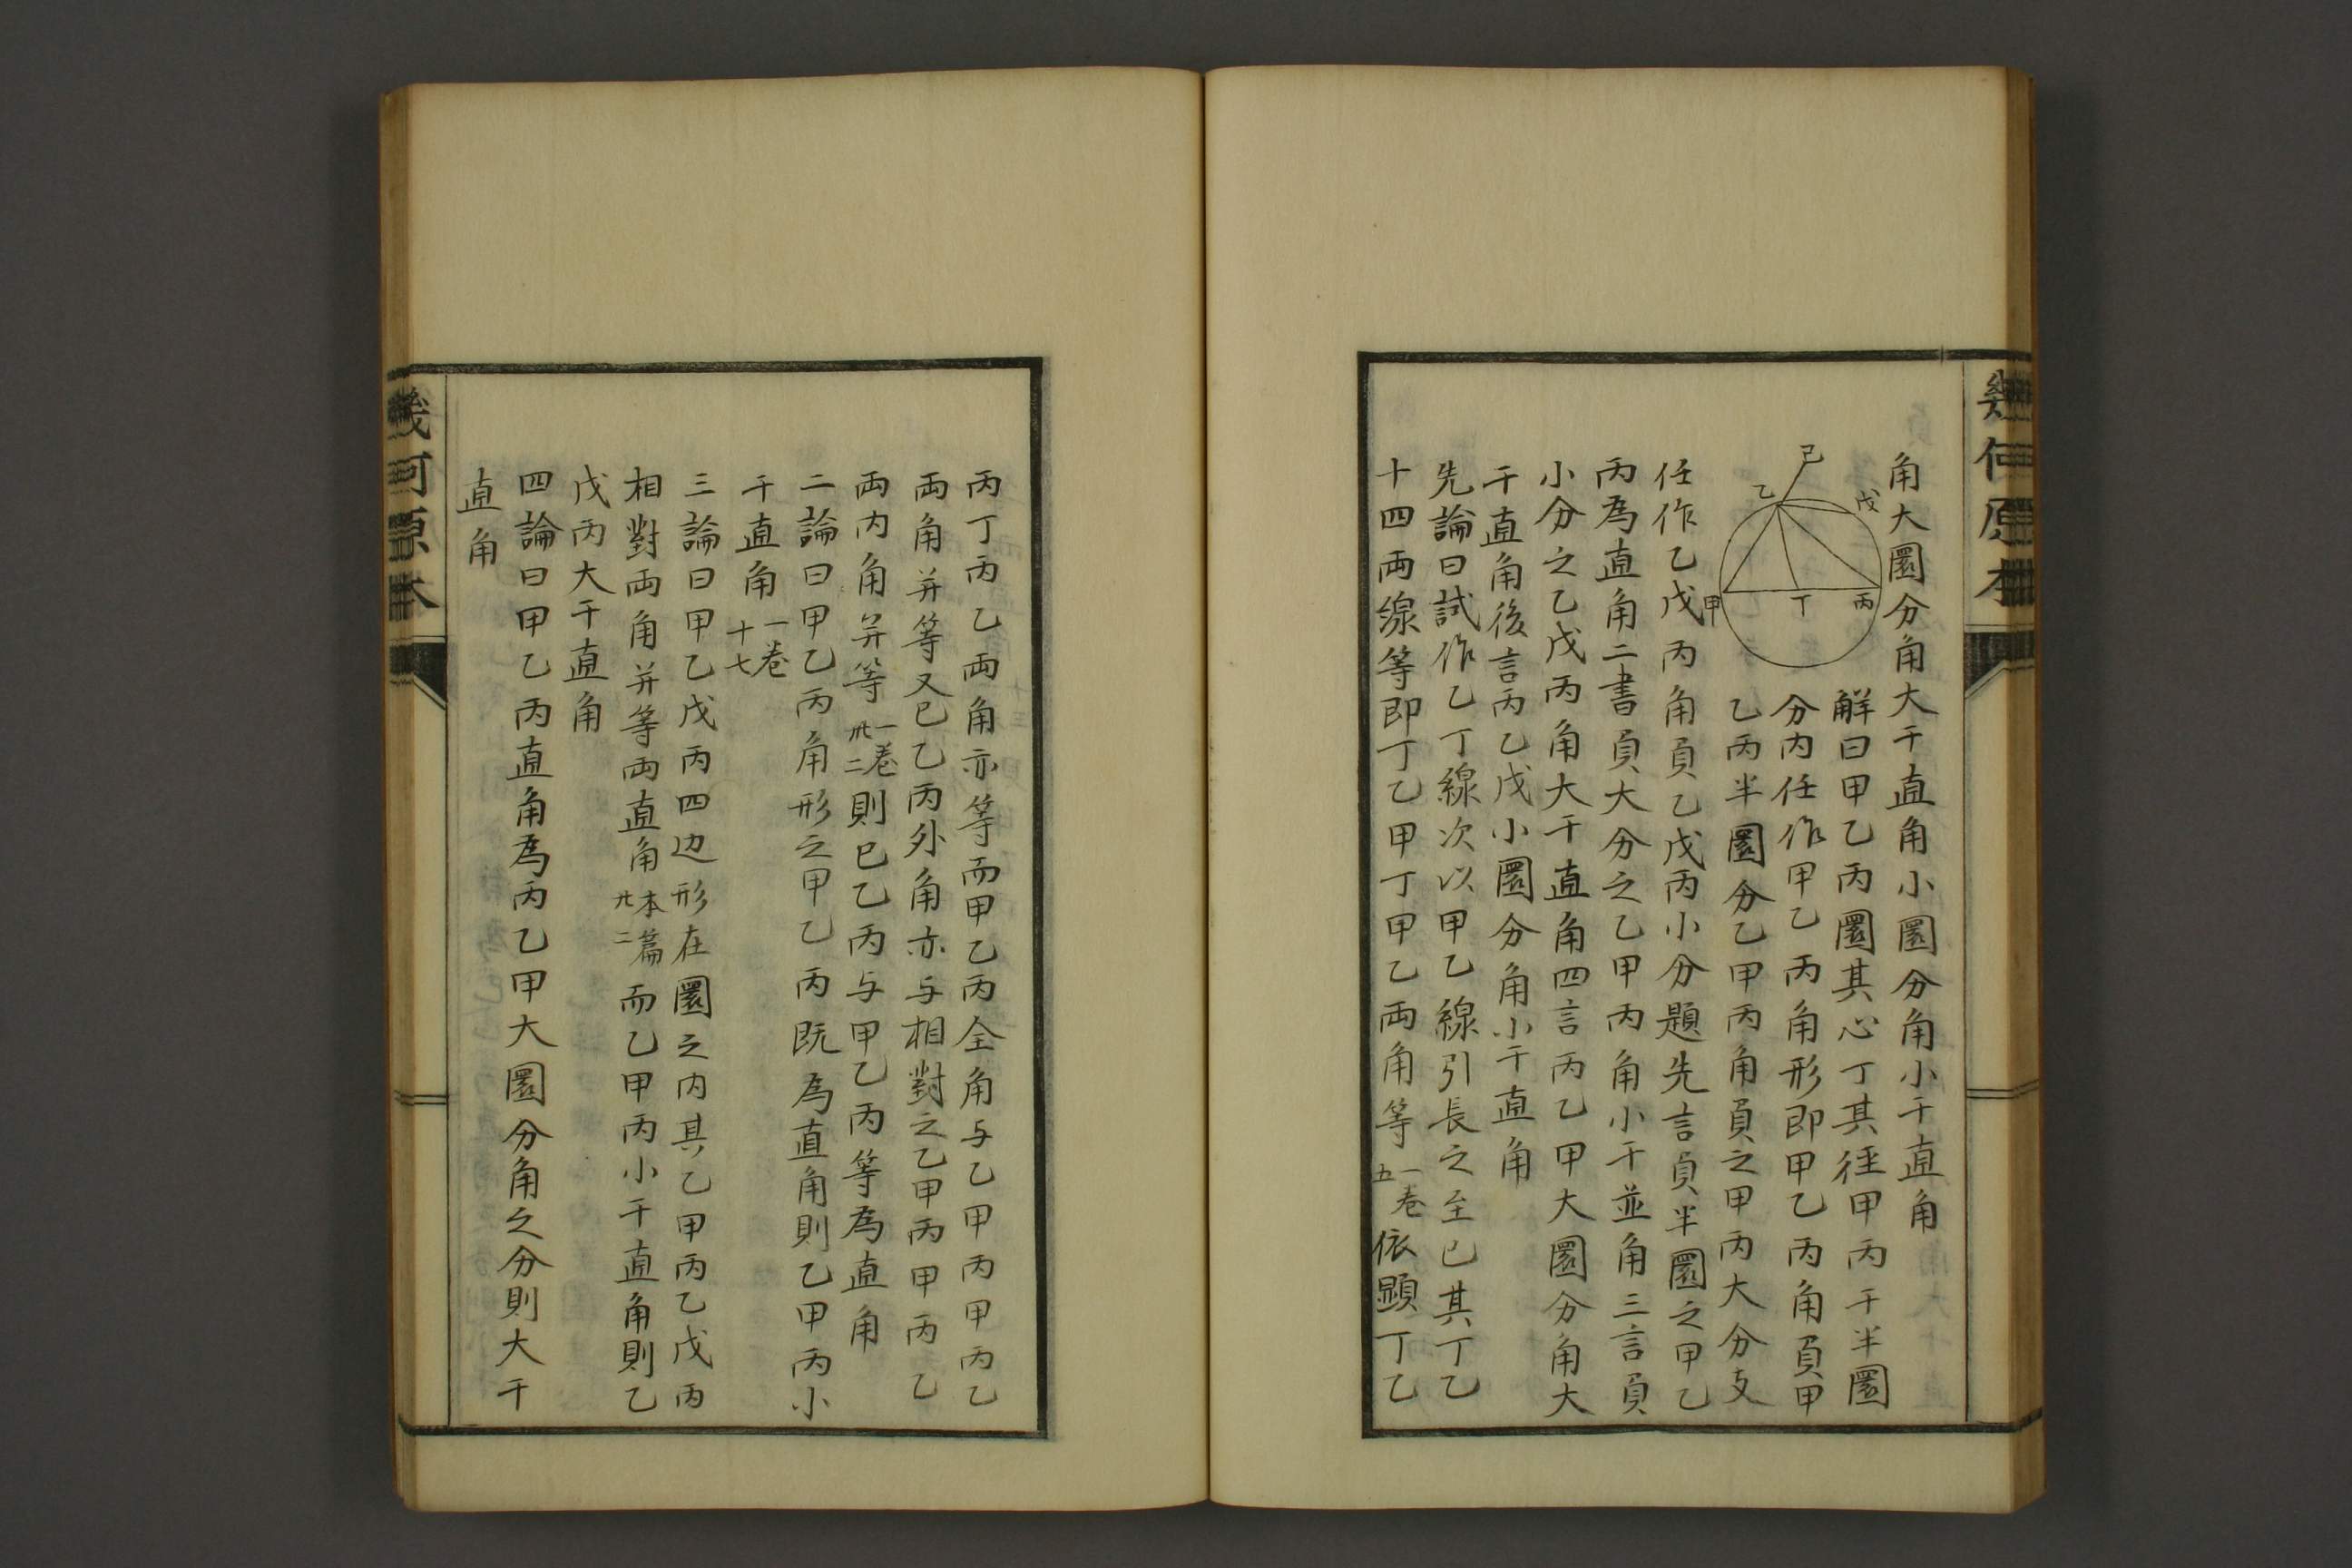 幾何原本
角大圜分角大于直角小圜分角小于直角
己
乙
戊
甲
丁
丙
解曰甲乙丙圜其心丁其徑甲丙于半圜
分内任作甲乙丙角形即甲乙丙角負甲
乙丙半圜分乙甲丙角負之甲丙大分支
任作乙戊丙角負乙戊丙小分題先言負半圜之甲乙
丙為直角二書負大分之乙甲丙角小于並角三言負
小分之乙戊丙角大于直角四言丙乙甲大圜分角大
于直角後言丙乙戊小圜分角小于直角
先論曰試作乙丁線次以甲乙線引長之至已其丁乙
十四両線等即丁乙甲丁甲乙両角等一卷五依顯丁乙
丙丁丙乙両角亦等而甲乙丙全角与乙甲丙甲丙乙
両角并等又已乙丙外角亦与相對之乙甲丙甲丙乙
両内角并等一卷卅二則已乙丙与甲乙丙等為直角
二論曰甲乙丙角形之甲乙丙既為直角則乙甲丙小
于直角一卷十七
三論曰甲乙戊丙四边形在圜之内其乙甲丙乙戊丙
相對両角并等両直角本篇廿二而乙甲丙小于直角則乙
戊丙大于直角
四論曰甲乙丙直角為丙乙甲大圜分角之分則大于
直角
幾何原本